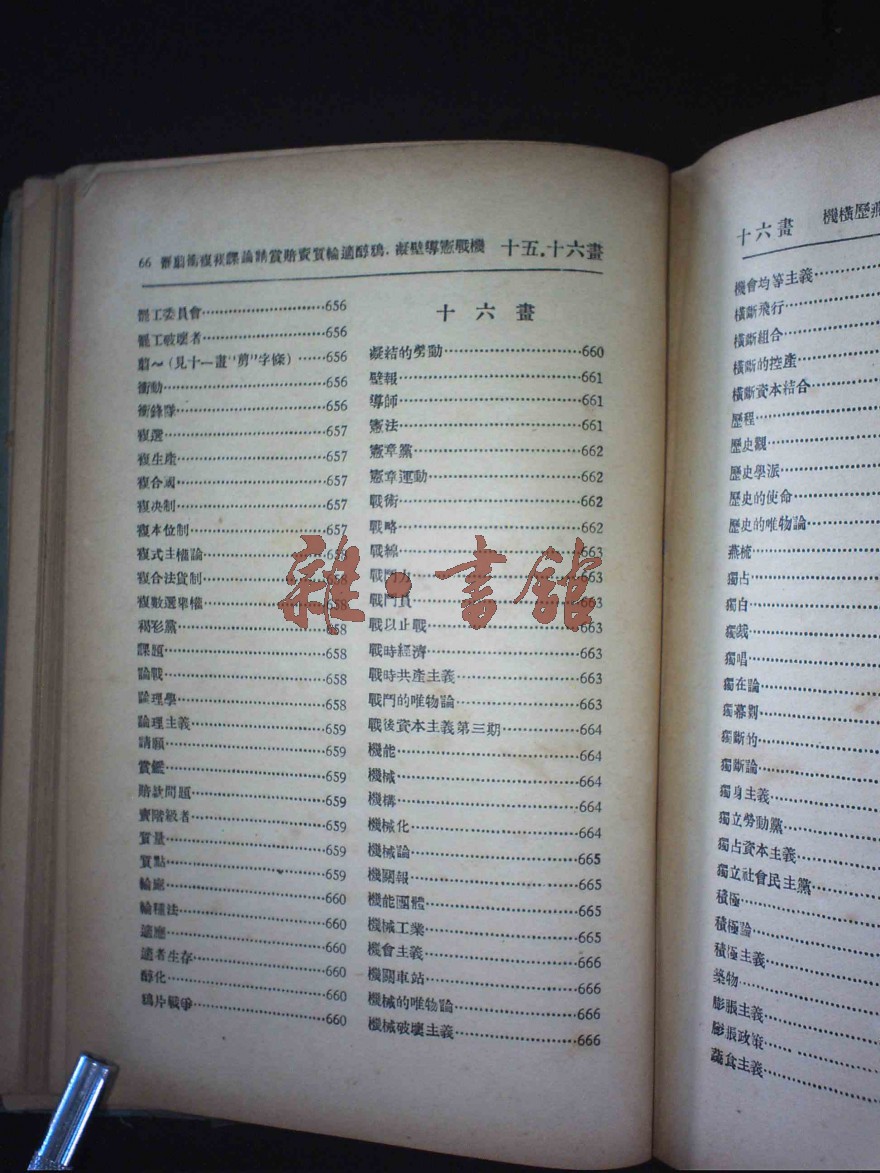 66 罷翦衝複褐課論請賞賠賣質輪適醇鴉．凝壁導憲戰機 十五．十六畫
罷工委員會……656
罷工破壞者……656
翦～(見十一畫"剪"字條)……656
衝動……656
衝鋒隊……656
複選……657
複生產……657
複合國……657
複决制……657
複本位制……657
複式主權論……658
複合法貨制……658
複數選舉權……658
褐衫黨……658
課題……658
論戰……658
論理學……658
論理主義……659
請願……659
賞鑑……659
賠款問題……659
賣階級者……659
質量……659
質點……659
輪廠……660
輪種法……660
適應……660
適者生存……660
醇化……660
鴉片戰爭……660
十六畫
凝結的勞動……660
壁報……661
導師……661
憲法……661
憲章黨……662
憲章運動……662
戰術……662
戰略……662
戰線……663
戰鬥力……663
戰鬥員……663
戰以止戰……663
戰時經濟……663
戰時共產主義……663
戰鬥的唯物論……663
戰後資本主義第三期……664
機能……664
機械……664
機構……664
機械化……664
機械論……665
機關報……665
機能團體……665
機械工業……665
機會主義……666
機關車站……666
機械的唯物論……666
機械破壞主義……666
十六畫 機橫歷燕
機會均等主義……
橫斷飛行……
橫斷組合……
橫斷的控產……
橫斷資本結合……
歷程……
歷史觀……
歷史學派……
歷史的使命……
歷史的唯物論……
燕梳……
獨占……
獨白……
獨裁……
獨唱……
獨在論……
獨幕劇……
獨斷的……
獨斷論……
獨身主義……
獨立勞動黨……
獨占資本主義……
獨立社會民主黨……
積極……
積極論……
積極主義……
築物……
膨脹主義……
膨脹政策……
蔬食主義……
雜·書館